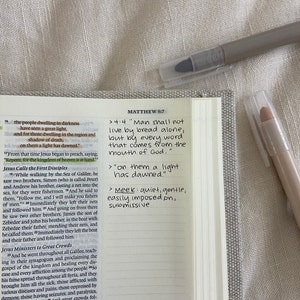 MATTHEW 5:7
"the people dwelling in darkness
have seen a great light,
and for those dwelling in the region and
shadow of death,
on them a light has dawned."
From that time Jesus began to preach, saying,
"Repent, for the kingdom of heaven is at hand."
Jesus Calls the First Disciples
While walking by the Sea of Galilee, he
saw two brothers, Simon (who is called Peter)
and Andrew his brother, casting a net into the
sea, for they were fishermen. And he said to
them, "Follow me, and I will make you fishers
of men." Immediately they left their nets
and followed him. And going on from there
he saw two other brothers, James the son of
Zebedee and John his brother, in the boat with
Zebedee their father, mending their nets, and
he called them. Immediately they left the boat
and their father and followed him.
Jesus Ministers to Great Crowds
And he went throughout all Galilee, teach-
ing in their synagogues and proclaiming the
gospel of the kingdom and healing every dis-
ease and every affliction among the people. So
his fame spread throughout all Syria, and they
brought him all the sick, those afflicted with
various diseases and pains, those oppressed
>4:4 "Man shall not
live by bread alone,
but by every word
that comes from the
mouth of God."
> "on them a light
has dawned."
> Meek: quiet, gentle,
easily imposed on,
submissive